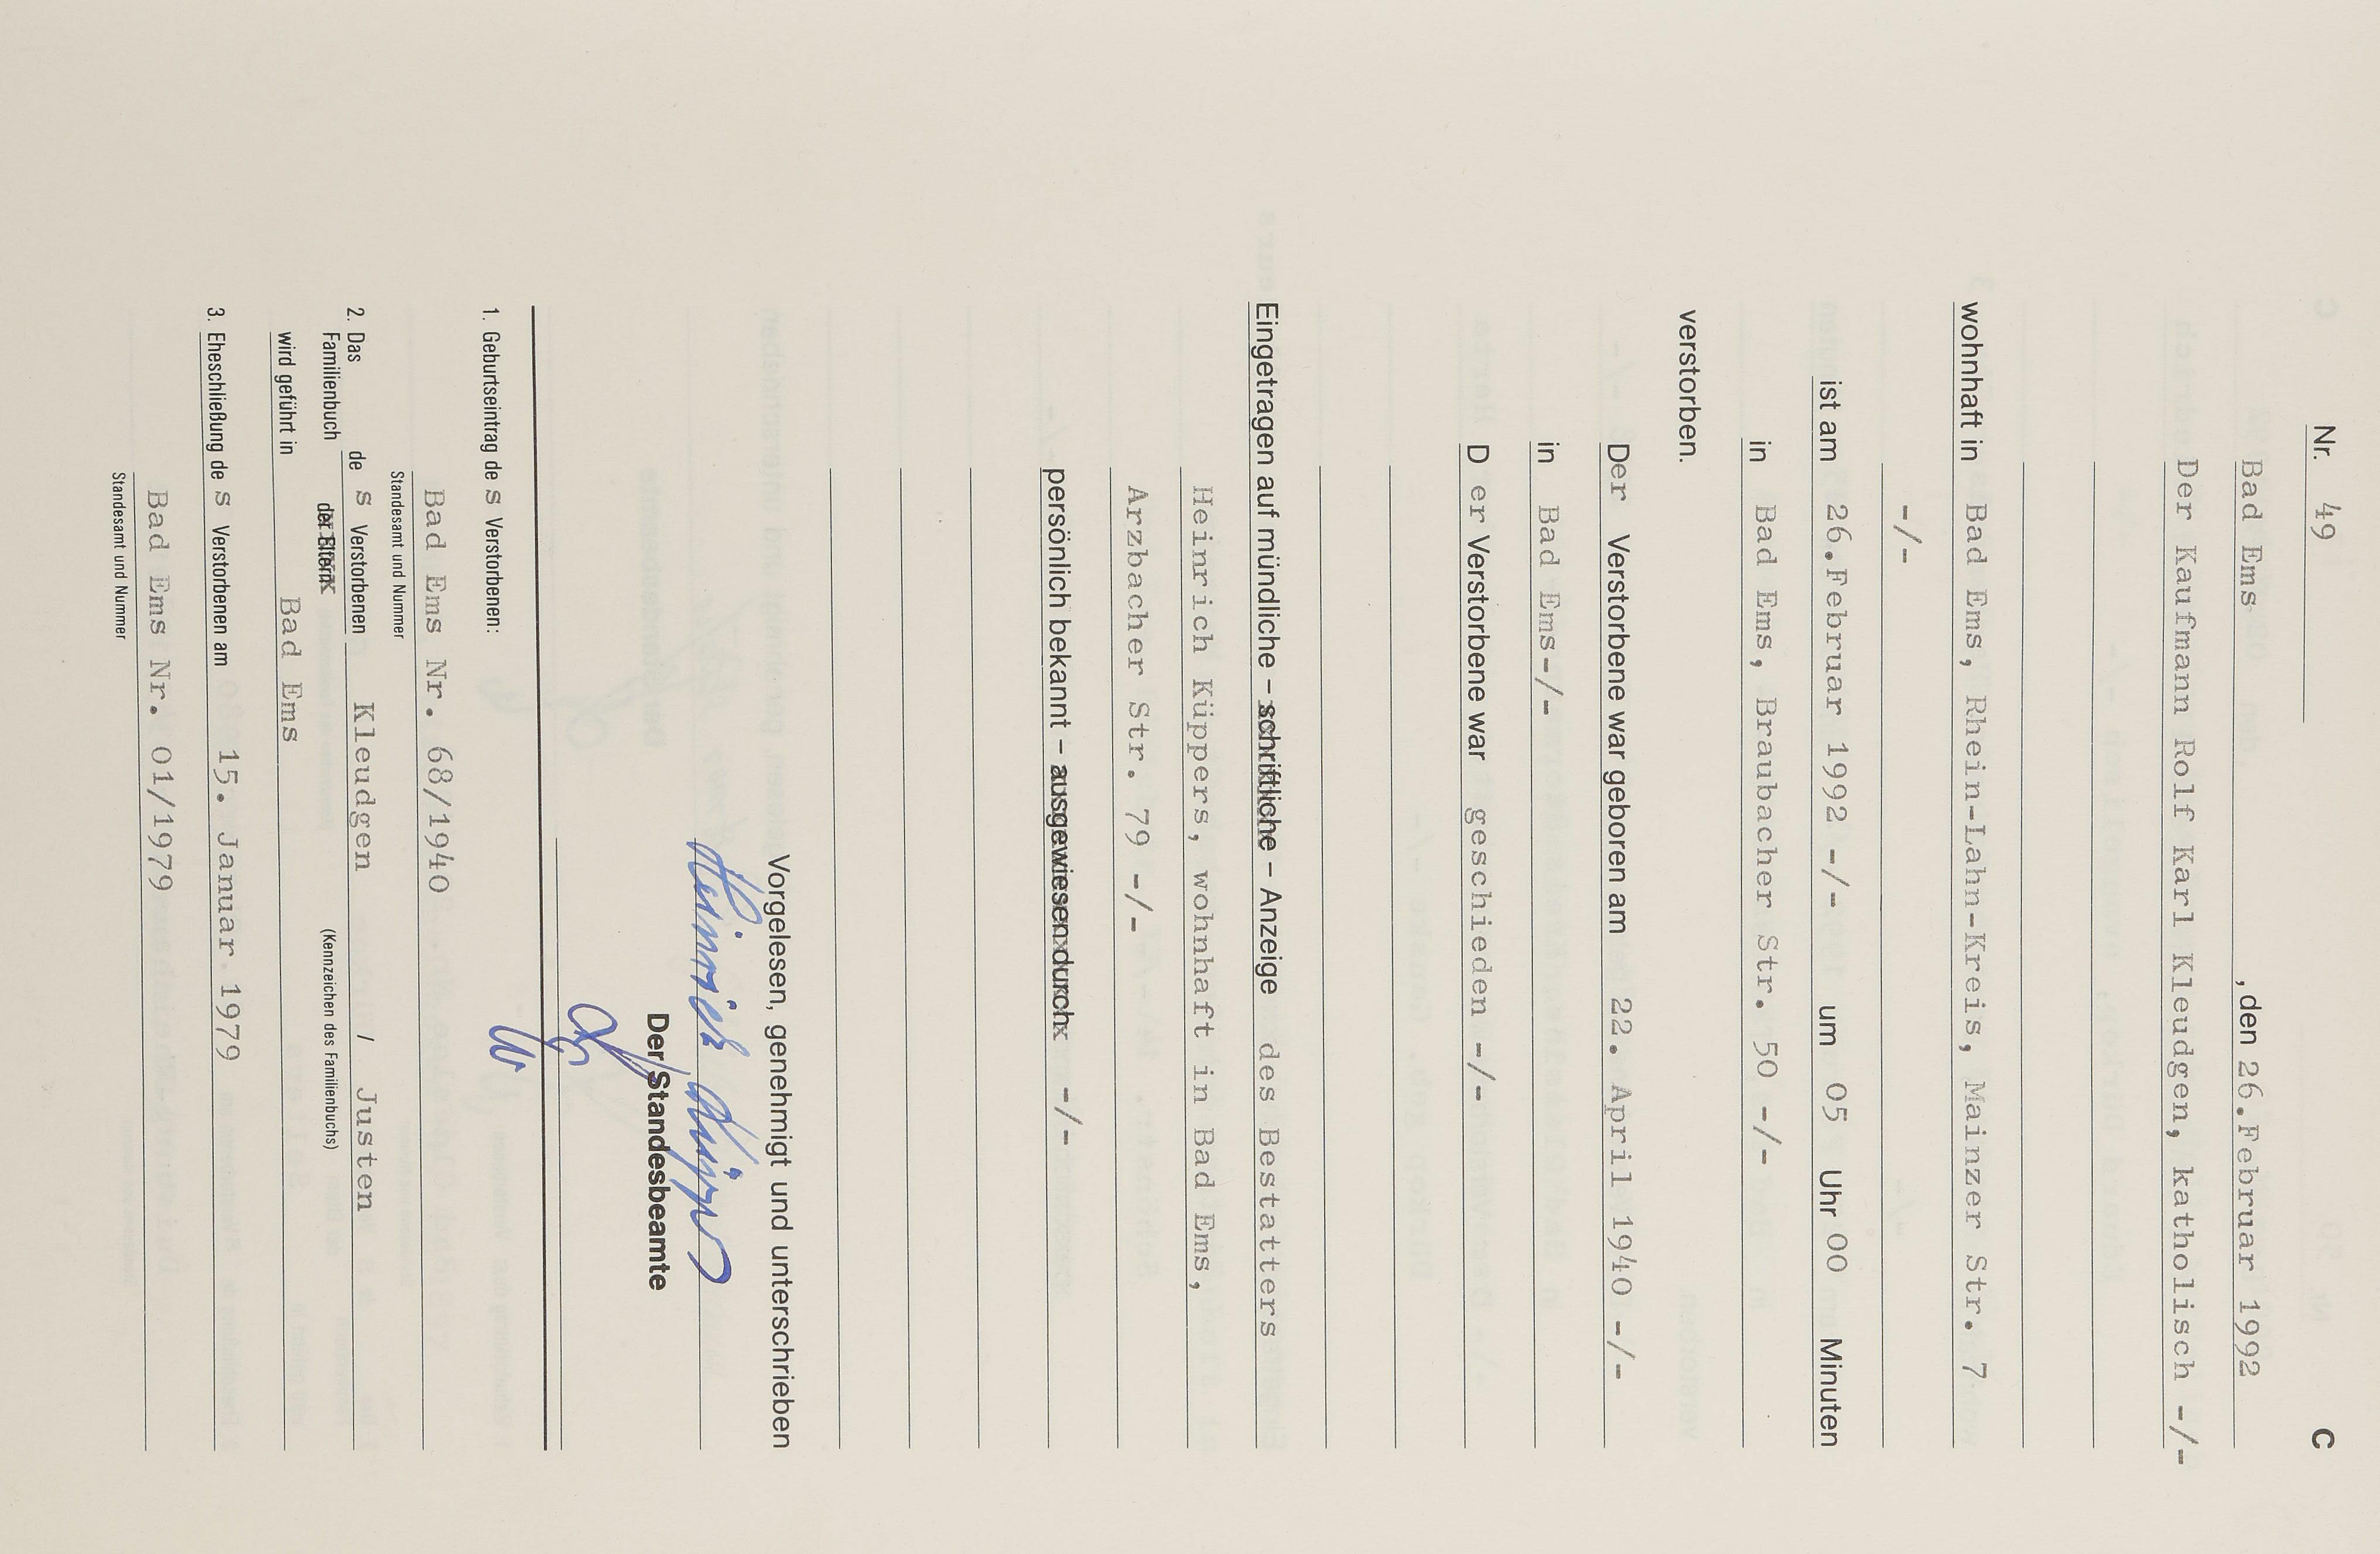 Nr. 49 C
Bad Ems , den 26.Februar 1992
Der Kaufmann Rolf Karl Kleudgen, katholisch -/-
wohnhaft in Bad Ems, Rhein-Lahn-Kreis, Mainzer Str. 7
-/-
ist am 26.Februar 1992 -/- um 05 Uhr 00 Minuten
in Bad Ems, Braubacher Str. 50 -/-
verstorben.
Der Verstorbene war geboren am 22. April 1940 -/-
in Bad Ems-/-
D er Verstorbene war geschieden -/-
Eingetragen auf mündliche – schriftliche – Anzeige des Bestatters
Heinrich Küppers, wohnhaft in Bad Ems,
Arzbacher Str. 79 -/-
persönlich bekannt – ausgewiesen durch -/-
Vorgelesen, genehmigt und unterschrieben
Heinrich Küppers
Der Standesbeamte
1. Geburtseintrag de s Verstorbenen:
Bad Ems Nr. 68/1940
Standesamt und Nummer
2. Das de s Verstorbenen Kleudgen / Justen
Familienbuch der Eltern (Kennzeichen des Familienbuchs)
wird geführt in Bad Ems
3. Eheschließung de s Verstorbenen am 15. Januar 1979
Bad Ems Nr. 01/1979
Standesamt und Nummer